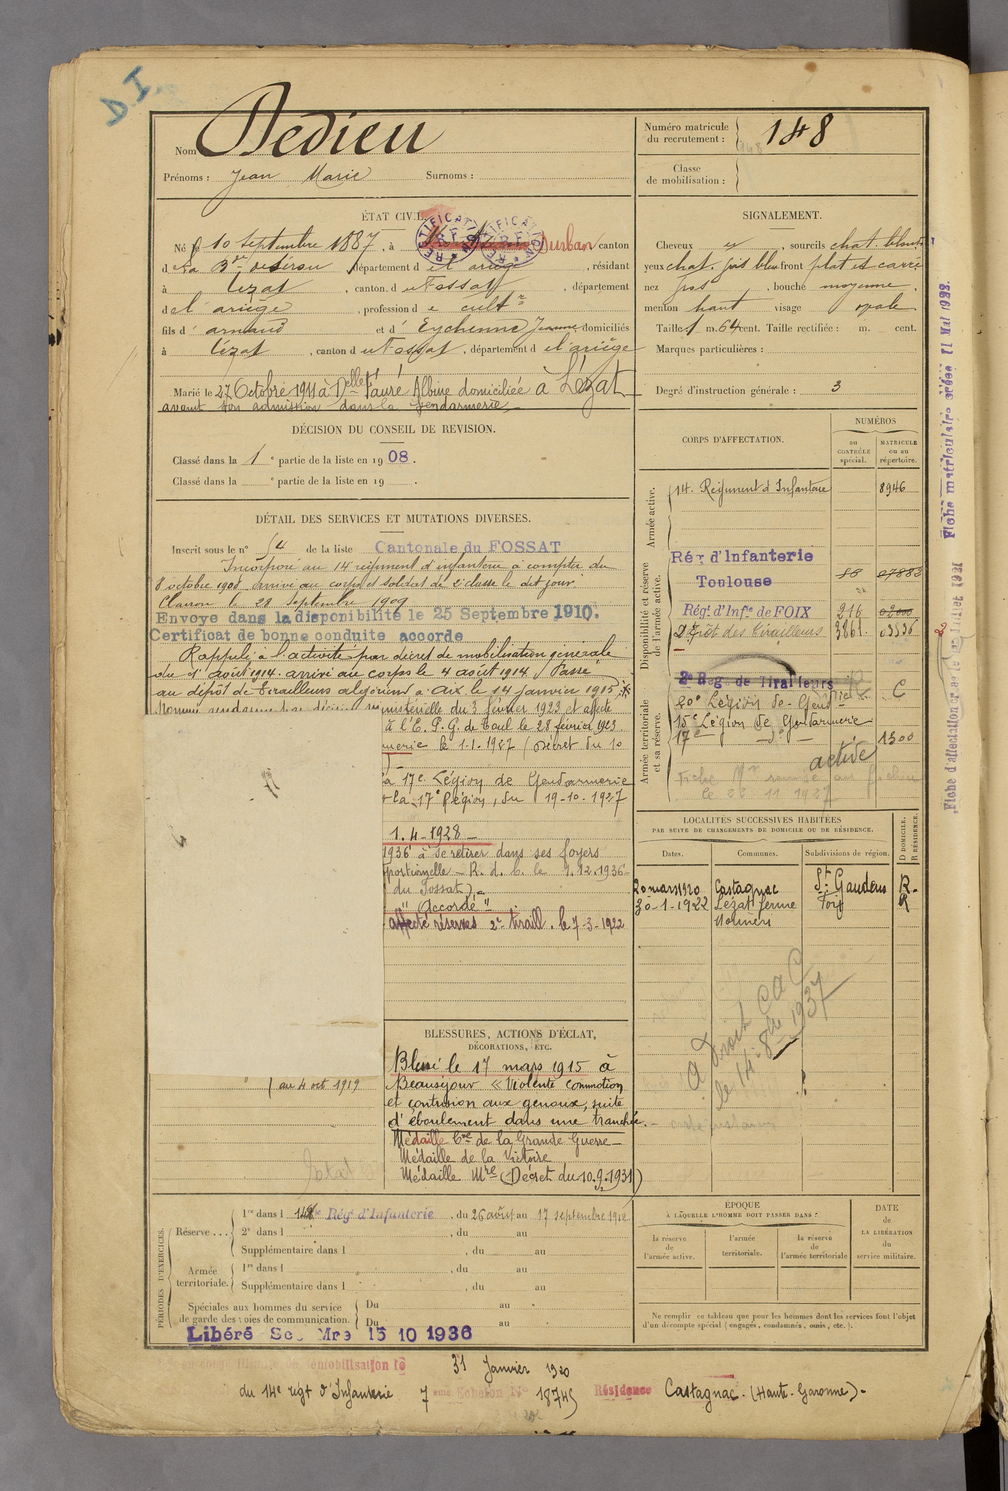 D.I.
Nom Dedieu
Prénoms : Jean Marie Surnoms :
Numéro matricule du recrutement : 148
Classe de mobilisation :
ÉTAT CIVIL.
Né le 10 septembre 1887, à Durban canton
de La Bde de Sérou, département de l'ariège, résidant
à Lézat, canton du Fossat, département
de l'ariège, profession de cultr
fils d'armand et d'Eychenne Jeanne domiciliés
à Lézat, canton du Fossat, département de l'ariège
Marié le 27 Octobre 1911 à Delle Fauré Albine domiciliée à Lézat
avant son admission dans la Gendarmerie
SIGNALEMENT.
Cheveux , sourcils chat. blonds
yeux chat. gris bleu front plat et carré
nez gros, bouche moyenne,
menton haut visage ovale
Taille 1 m. 64 cent. Taille rectifiée : m. cent.
Marques particulières :
Degré d'instruction générale : 3
DÉCISION DU CONSEIL DE REVISION.
Classé dans la 1e partie de la liste en 1908.
Classé dans la e partie de la liste en 19 .
DÉTAIL DES SERVICES ET MUTATIONS DIVERSES.
Inscrit sous le n° 54 de la liste Cantonale du FOSSAT
Incorporé au 14 régiment d'infanterie à compter du
8 octobre 1908. arrivé au corps et soldat de 2e classe le dit jour
Clairon le 28 septembre 1909
Envoyé dans la disponibilité le 25 Septembre 1910.
Certificat de bonne conduite accordé
Rappelé à l'activité par décret de mobilisation générale
du 1er août 1914. arrivé au corps le 4 août 1914. Passé
au dépôt de tirailleurs algériens à Aix le 14 Janvier 1915
Nommé gendarme par décision ministérielle du 3 février 1923 et affecté
à l'E. P. G. de Toul le 28 février 1923
merie le 1.1.1927 (Décret du 10
la 17e Légion de Gendarmerie
la 17e Légion, du 19-10-1927
1.4-1928
1936 à se retirer dans ses foyers
portionnelle - R. d. C. le 9.12.1936
du Fossat)
"Accordé"
affecté réserves 2e tiraill. le 7-3-1922
au 4 oct. 1919
BLESSURES, ACTIONS D'ÉCLAT,
DÉCORATIONS, ETC.
Blessé le 17 mars 1915 à
Beauséjour « Violente commotion
et contusion aux genoux, suite
d'éboulement dans une tranchée.
Médaille Cve de la Grande Guerre
Médaille de la Victoire
Médaille Mre (Décret du 10.9.1931)
CORPS D'AFFECTATION.
NUMÉROS
au CONTRÔLE spécial.
MATRICULE ou au répertoire.
Armée active.
14. Régiment d'Infanterie 8946
Disponibilité et réserve de l'armée active.
Rég d'Infanterie
Toulouse 88 07883
Régt. d'Infie de FOIX 216 02000
Dépôt des tirailleurs 3861. 03536
Armée territoriale et sa réserve.
2e Rég. de Tirailleurs
20e Légion de Gendrie C
15e Légion de Gendarmerie
17e 1500
active
LOCALITÉS SUCCESSIVES HABITÉES
PAR SUITE DE CHANGEMENTS DE DOMICILE OU DE RÉSIDENCE.
Dates. Communes. Subdivisions de région. D DOMICILE. R RÉSIDENCE.
20 mars 1920 Castagnac St Gaudens R
30-1-1922 Lézat ferme Foix R
Molinéri
a Droit CaC
le 14 8bre 1937
PÉRIODES D'EXERCICES.
Réserve ... 1re dans l 14e Régt d'Infanterie, du 26 août au 17 septembre 1912
2e dans l , du au
Supplémentaire dans l , du au
Armée territoriale. 1re dans l , du au
Supplémentaire dans l , du au
Spéciales aux hommes du service de garde des voies de communication. Du au
Du au
Libéré Sce Mre 15 10 1936
ÉPOQUE
À LAQUELLE L'HOMME DOIT PASSER DANS :
la réserve de l'armée active.
l'armée territoriale.
la réserve de l'armée territoriale
DATE de LA LIBÉRATION du service militaire.
Ne remplir ce tableau que pour les hommes dont les services font l'objet
d'un décompte spécial (engagés, condamnés, omis, etc.).
démobilisation le 31 Janvier 1920
du 14e régt d'Infanterie 7 ème Echelon No 18745 Résidence Castagnac. (Haute-Garonne)
Fiche matriculaire créée 11 Mai 1933.
Fiche d'affectation créée le Juillet 1931